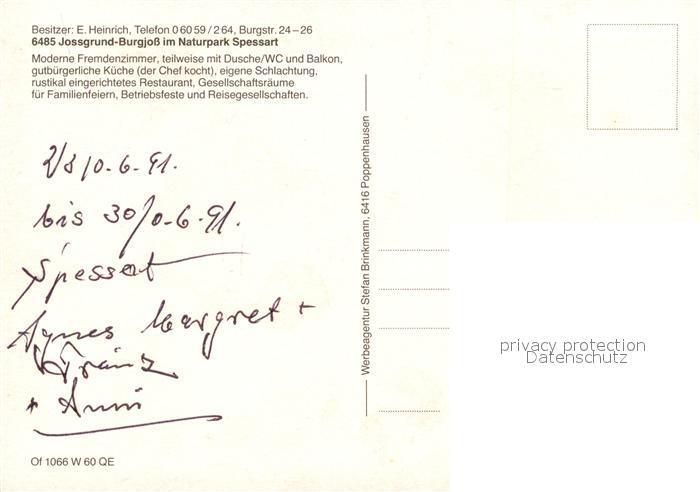 Besitzer: E. Heinrich, Telefon 0 60 59 / 2 64, Burgstr. 24–26
6485 Jossgrund-Burgjoß im Naturpark Spessart
Moderne Fremdenzimmer, teilweise mit Dusche/WC und Balkon,
gutbürgerliche Küche (der Chef kocht), eigene Schlachtung,
rustikal eingerichtetes Restaurant, Gesellschaftsräume
für Familienfeiern, Betriebsfeste und Reisegesellschaften.
0-6-91.
bis 30/0-6-91.
Spessat
Agnes Margret +
Franz
+ Anni
Of 1066 W 60 QE
Werbeagentur Stefan Brinkmann, 6416 Poppenhausen
privacy protection
Datenschutz